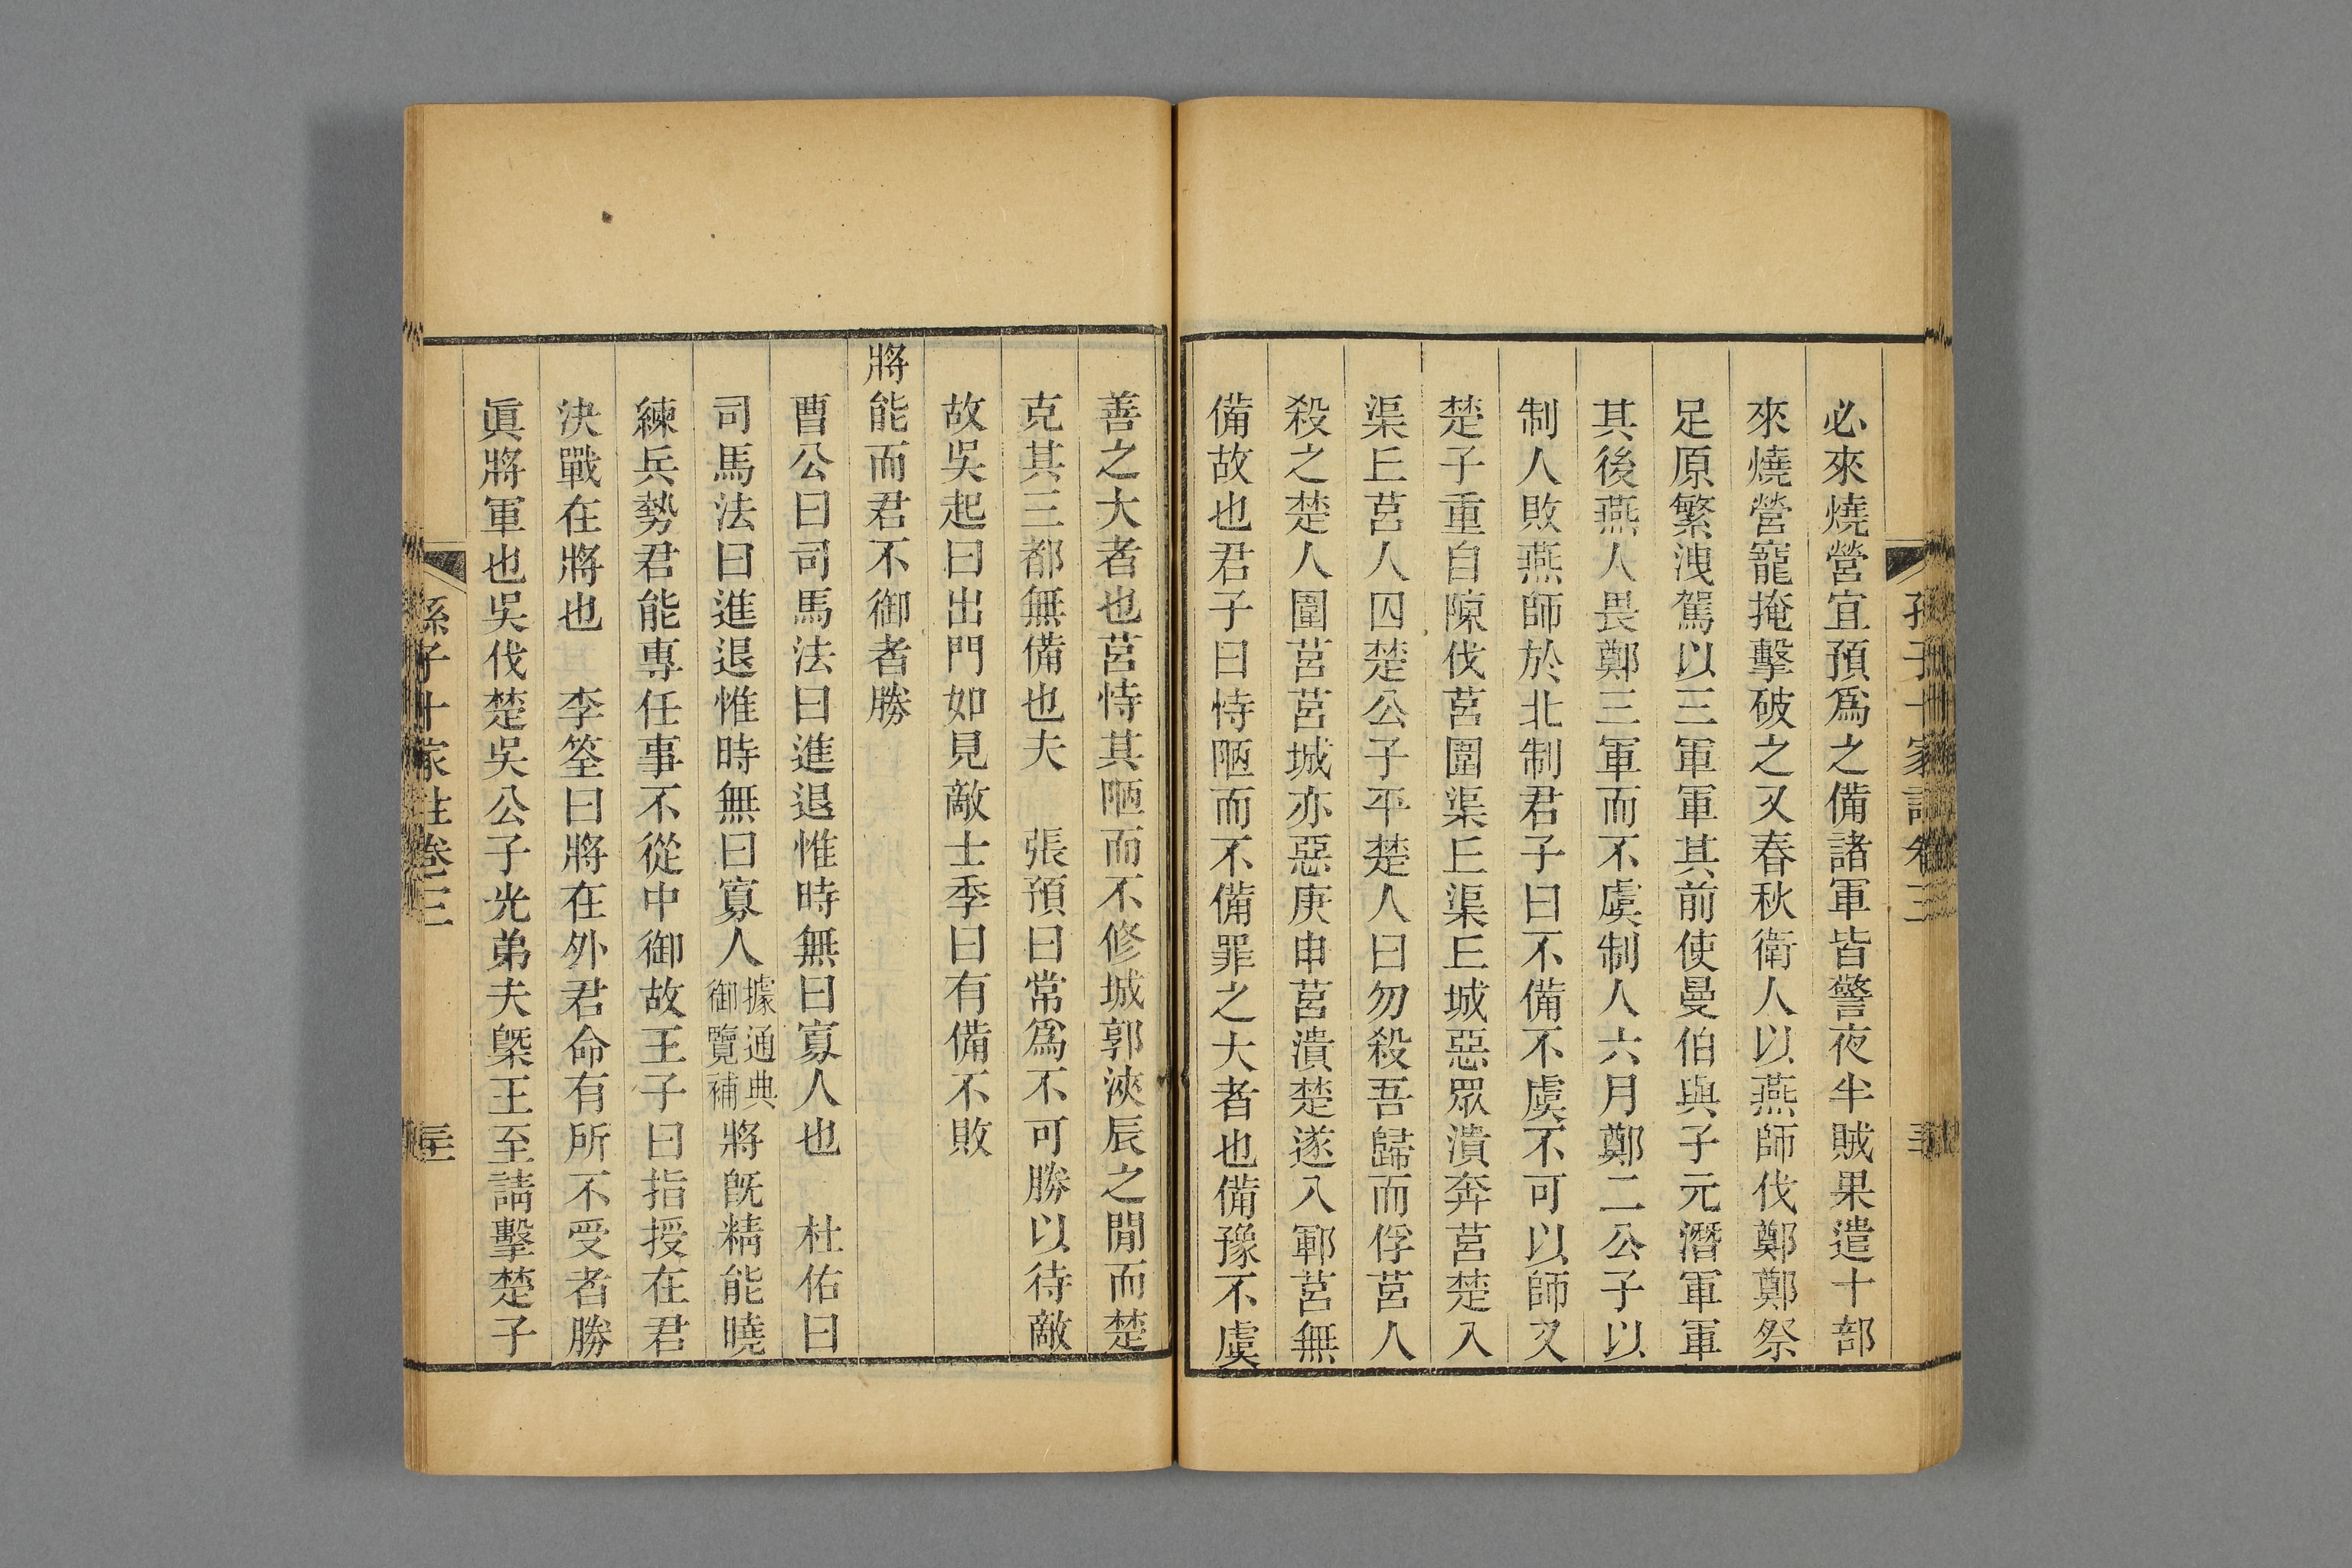 孫子十家註卷三
必來燒營宜預爲之備諸軍皆警夜半賊果遣十部
來燒營寵掩擊破之又春秋衛人以燕師伐鄭鄭祭
足原繁洩駕以三軍軍其前使曼伯與子元潛軍軍
其後燕人畏鄭三軍而不虞制人六月鄭二公子以
制人敗燕師於北制君子曰不備不虞不可以師又
楚子重自陳伐莒圍渠丘渠丘城惡眾潰奔莒楚入
渠丘莒人囚楚公子平楚人曰勿殺吾歸而俘莒人
殺之楚人圍莒莒城亦惡庚申莒潰楚遂入鄆莒無
備故也君子曰恃陋而不備罪之大者也備豫不虞
善之大者也莒恃其陋而不修城郭浹辰之閒而楚
克其三都無備也夫　張預曰常爲不可勝以待敵
故吳起曰出門如見敵士季曰有備不敗
將能而君不御者勝
曹公曰司馬法曰進退惟時無曰寡人也　杜佑曰
司馬法曰進退惟時無曰寡人據通典御覽補將旣精能曉
練兵勢君能專任事不從中御故王子曰指授在君
決戰在將也　李筌曰將在外君命有所不受者勝
眞將軍也吳伐楚吳公子光弟夫槩王至請擊楚子
孫子十家註卷三